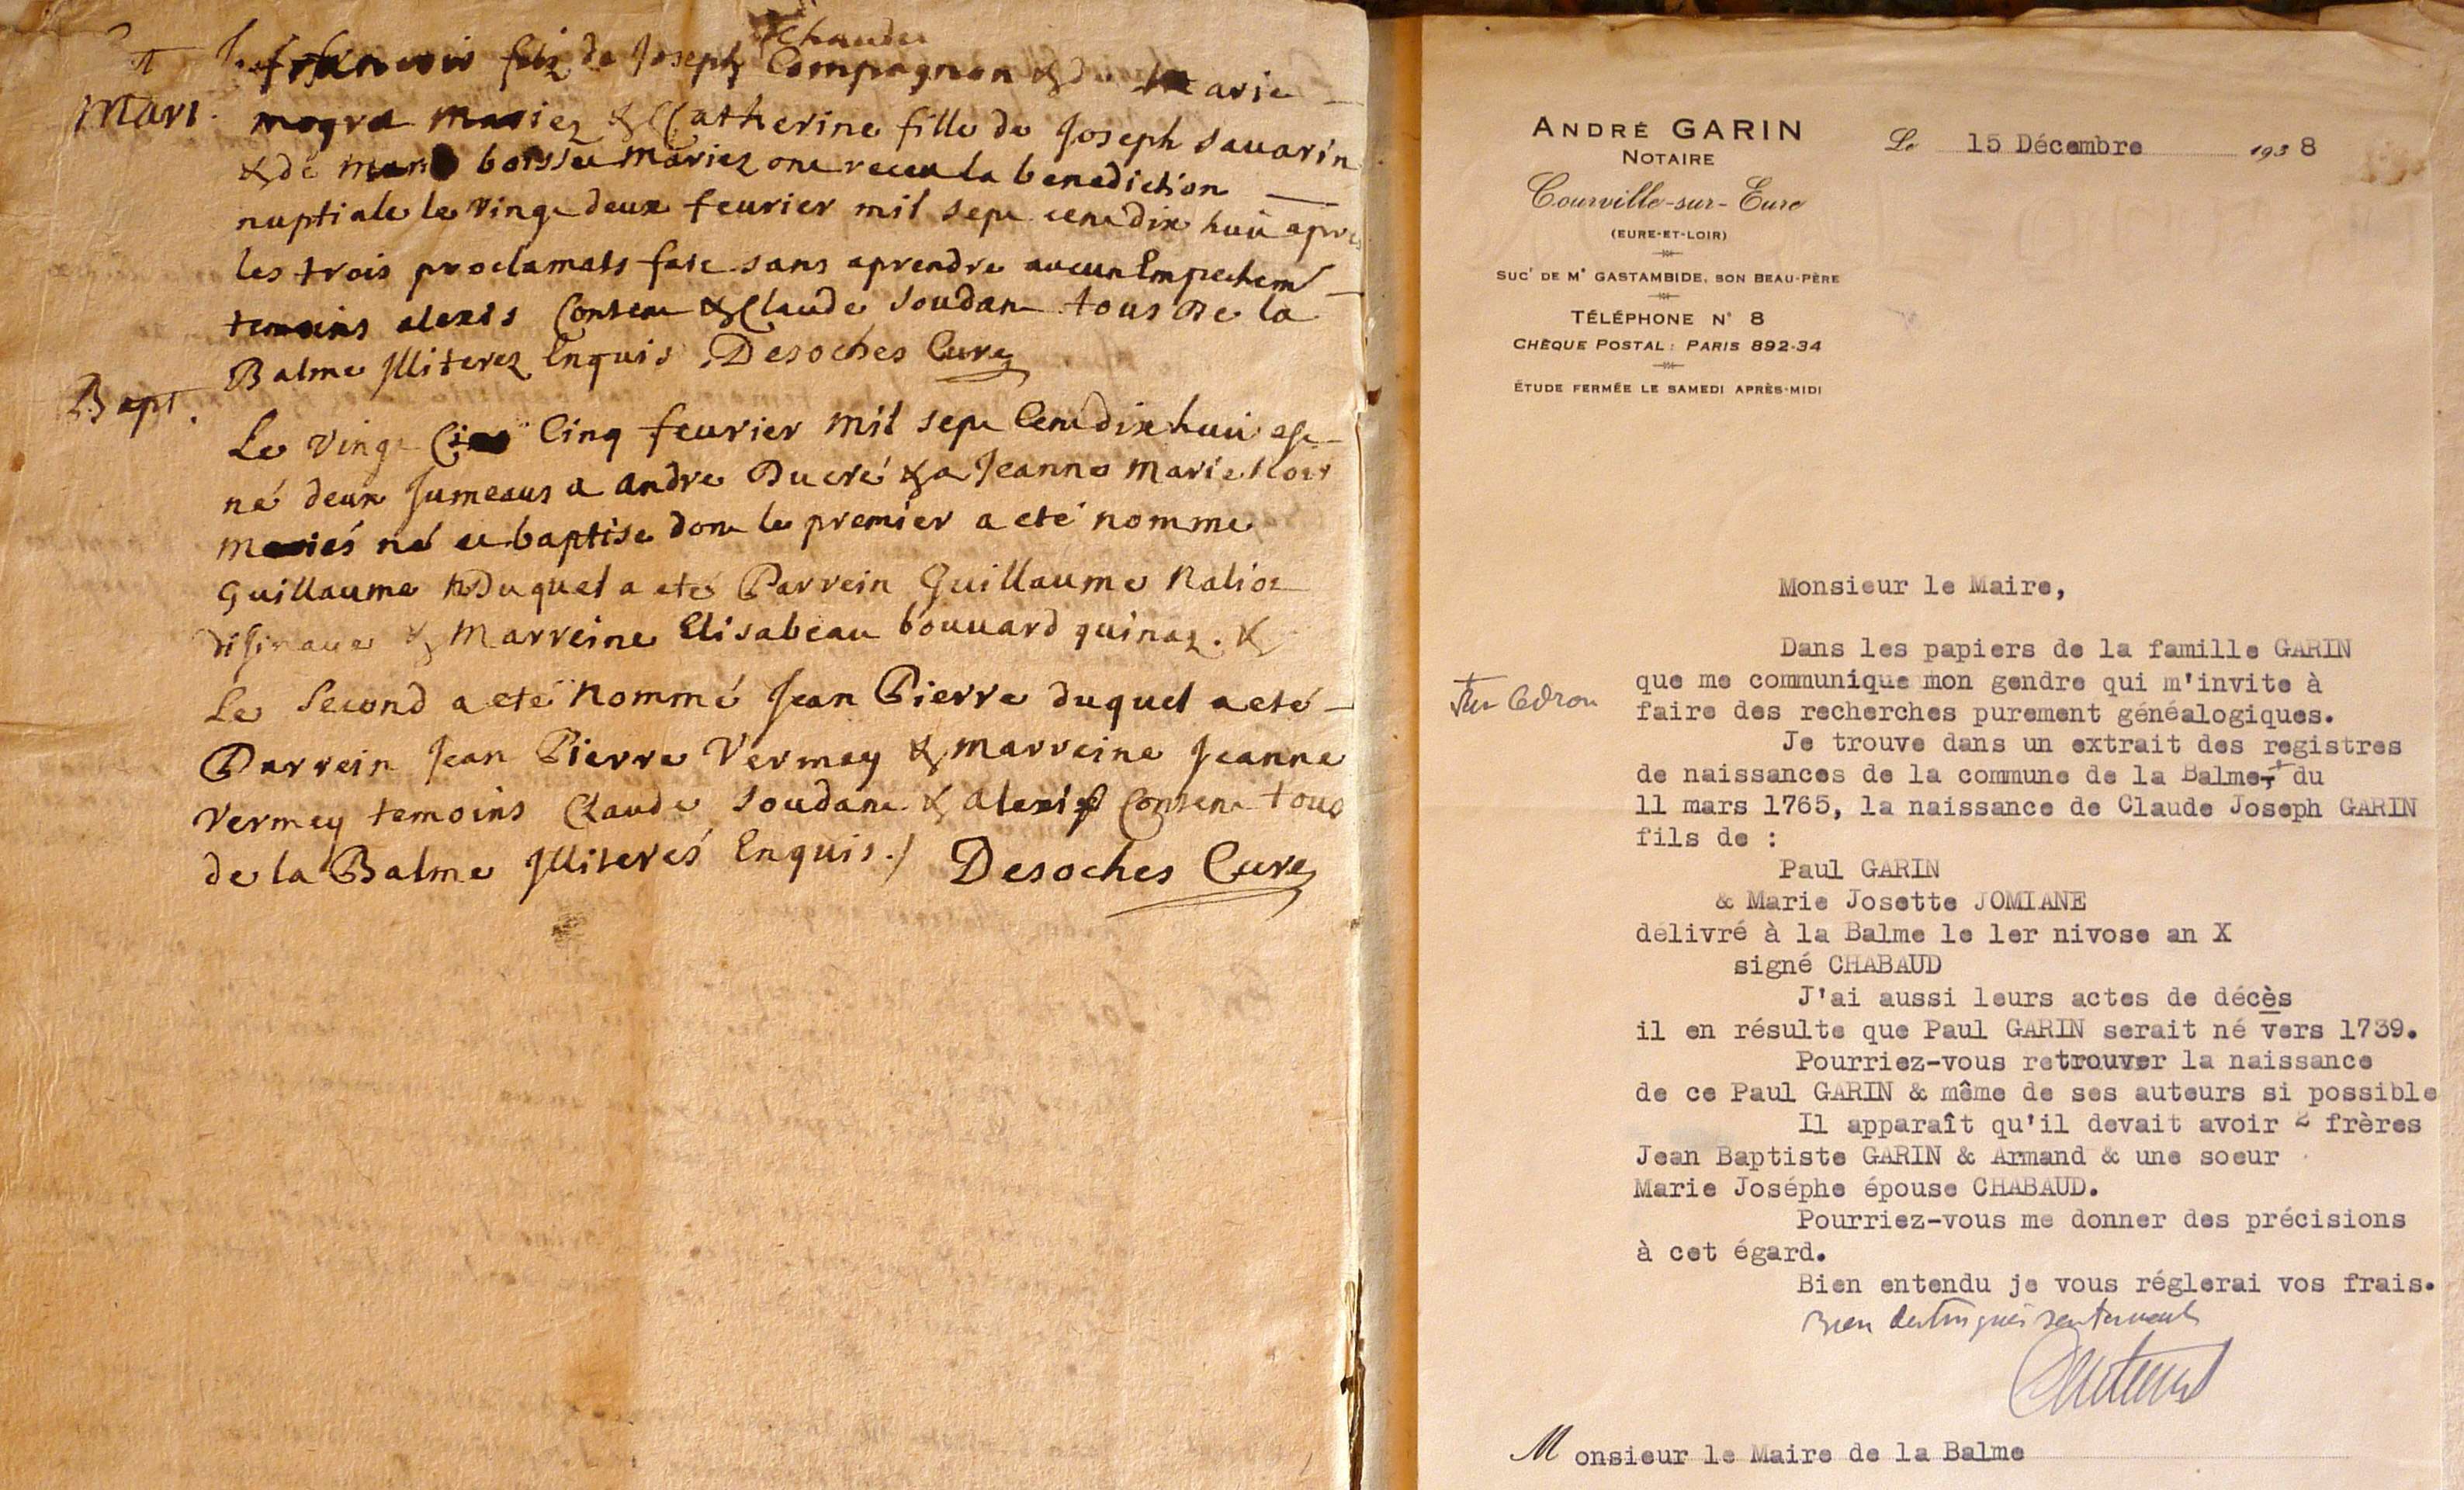 chaude
francois filz de Joseph Compagnon & de Marie
Mari.
mogra mariez & Catherine fille de Joseph savarin
& de boisse mariez ont receu la benediction
nuptiale le vingt deux feurier mil sept cent dix huit apres
les trois proclamats fait sans aprendre aucun Empechemt
temoins alexis Content & Claude soudan tous De la
Balme Illiterez Enquis Desoches Cure
Bapt.
Le vingt Cinq feurier mil sept Cent dix huit est
né deux Jumeaus a andre Ducré & a Jeanne Marie
mariés né et baptise dont le premier a eté nomme
Guillaume Duquel a eté Parrein Guillaume
& Marreine Elisabeau bouvard quinaz. &
Le Second a eté Nommé Jean Pierre duquel a eté
Parrein Jean Pierre Vermey & marreine Jeanne
Vermey temoins Claude soudan & alexis Content tous
de la Balme Illiterés Enquis ./ Desoches Cure
ANDRÉ GARIN
NOTAIRE
Courville-sur-Eure
(EURE-ET-LOIR)
SUCr DE Me GASTAMBIDE, SON BEAU-PÈRE
TÉLÉPHONE N° 8
CHÈQUE POSTAL : PARIS 892-34
ÉTUDE FERMÉE LE SAMEDI APRÈS-MIDI
Le 15 Décembre 1938
Monsieur le Maire,
Dans les papiers de la famille GARIN
que me communique mon gendre qui m'invite à
faire des recherches purement généalogiques.
Je trouve dans un extrait des registres
de naissances de la commune de la Balme, du
11 mars 1765, la naissance de Claude Joseph GARIN
fils de :
Paul GARIN
& Marie Josette JOMIANE
délivré à la Balme le 1er nivose an X
signé CHABAUD
J'ai aussi leurs actes de décès
il en résulte que Paul GARIN serait né vers 1739.
Pourriez-vous retrouver la naissance
de ce Paul GARIN & même de ses auteurs si possible
Il apparaît qu'il devait avoir 2 frères
Jean Baptiste GARIN & Armand & une soeur
Marie Joséphe épouse CHABAUD.
Pourriez-vous me donner des précisions
à cet égard.
Bien entendu je vous réglerai vos frais.
Bien distingués sentiments
Monsieur le Maire de la Balme